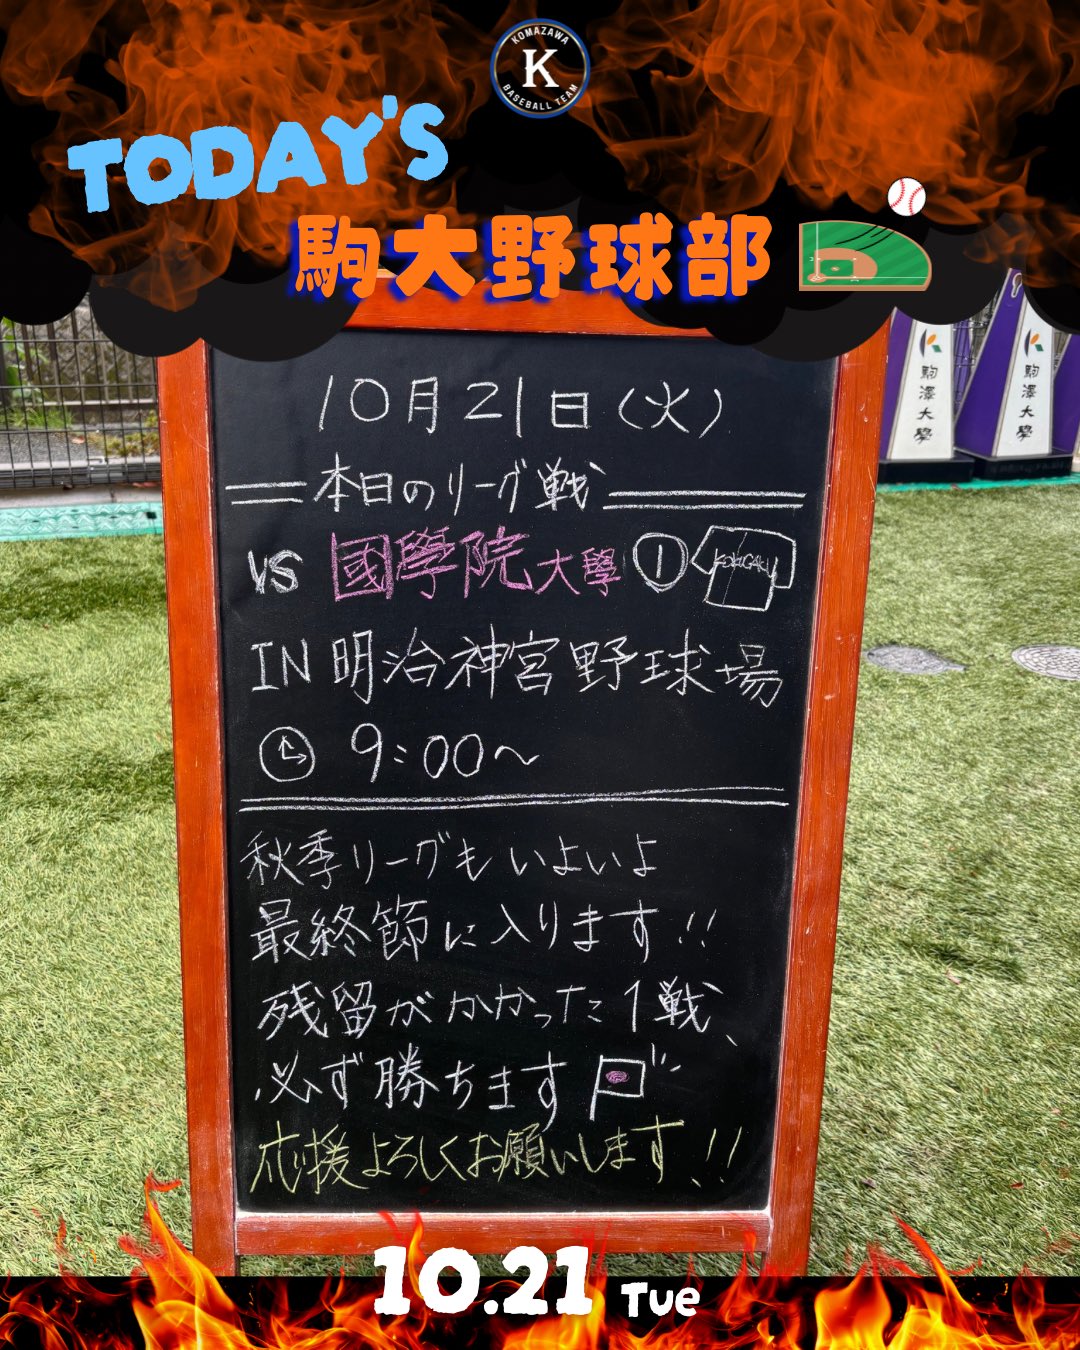 KOMAZAWA
K
BASEBALL TEAM
TODAY'S
駒大野球部
駒澤大學
駒澤大學
10月21日(火)
本日のリーグ戦
VS 國學院大學 ① KOKUGAKU
IN 明治神宮野球場
9:00〜
秋季リーグもいよいよ
最終節に入ります!!
残留がかかった1戦、
必ず勝ちます
応援よろしくお願いします!!
10.21 Tue